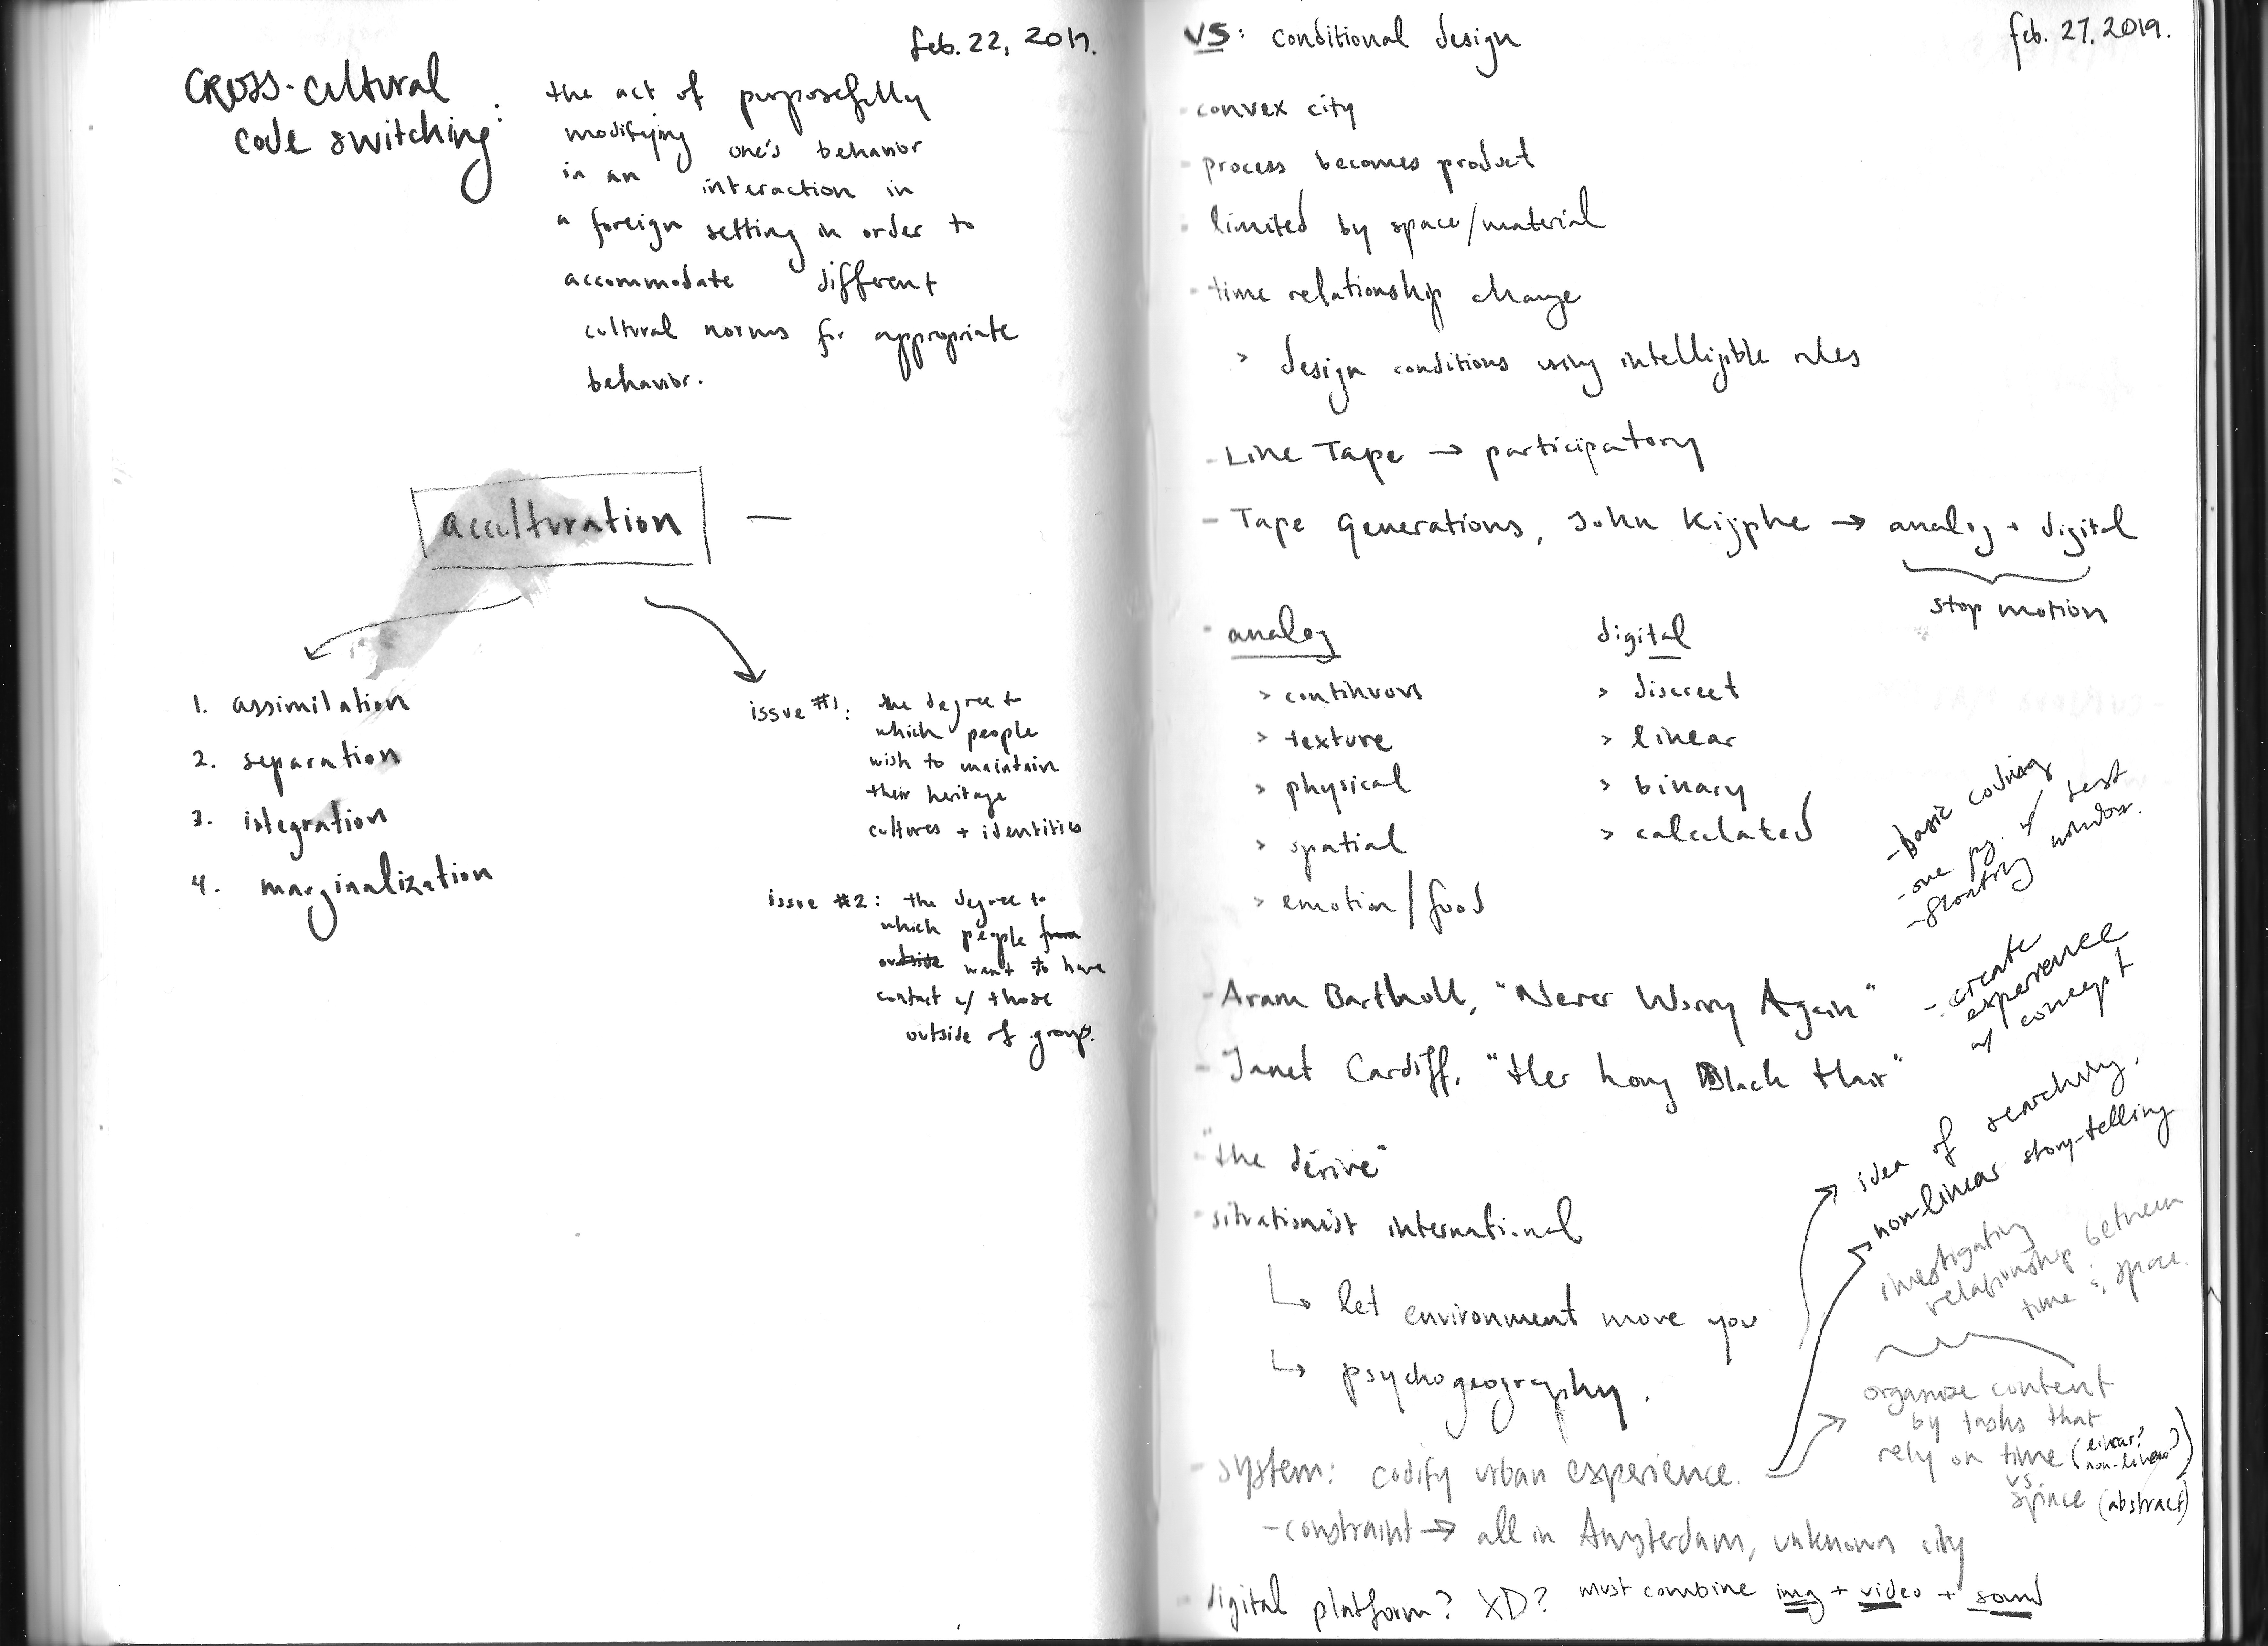 feb. 22, 2019.
CROSS-cultural
code switching:
the act of purposefully
modifying one's behavior
in an interaction in
a foreign setting in order to
accommodate different
cultural norms for appropriate
behavior.
acculturation —
1. assimilation
2. separation
3. integration
4. marginalization
issue #1: the degree to
which people
wish to maintain
their heritage
cultures + identities
issue #2: the degree to
which people from
outside want to have
contact w/ those
outside of group.
feb. 27, 2019.
VS: conditional design
- convex city
- process becomes product
- limited by space/material
- time relationship change
> design conditions using intelligible rules
- Line Tape → participatory
- Tape Generations, John Kijphe → analog + digital
stop motion
- analog
> continuous
> texture
> physical
> spatial
> emotion/food
digital
> discreet
> linear
> binary
> calculated
- basic coding
- one pg. w/ text
- window.
- Aram Bartholl, "Never Worry Again"
- create
experience
w/ concept
- Janet Cardiff, "Her Long Black Hair"
- "the dérive"
- situationist international
↳ let environment move you
↳ psychogeography.
idea of searching.
non-linear story-telling
investigating
relationship between
time & space.
organize content
by tasks that
rely on time (linear?
non-linear?)
vs.
space (abstract)
- system: codify urban experience.
- constraint → all in Amsterdam, unknown city
- digital platform? XD? must combine img + video + sound